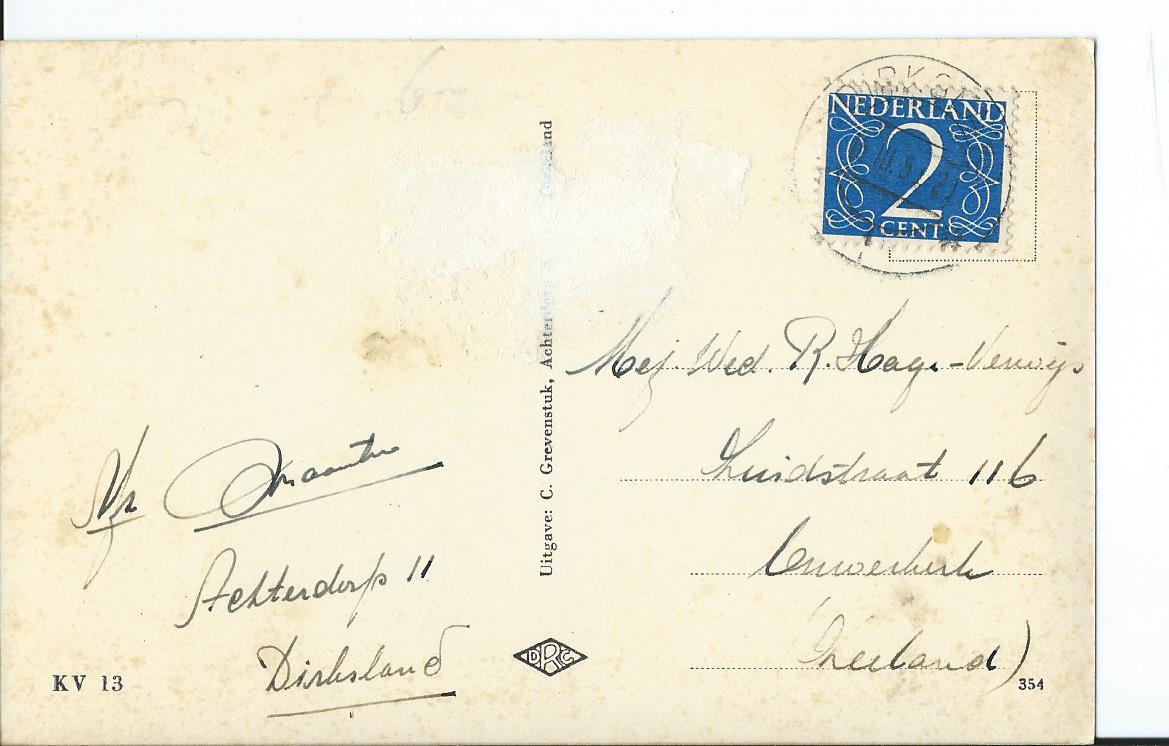 DIRKSLAND
NEDERLAND
2
CENT
Uitgave: C. Grevenstuk, Achterdorp
Mej. Wed. R. Hage-Verwijs
Zuidstraat 116
Ouwerkerk
(Zeeland)
Achterdorp 11
Dirksland
KV 13
DRC
354